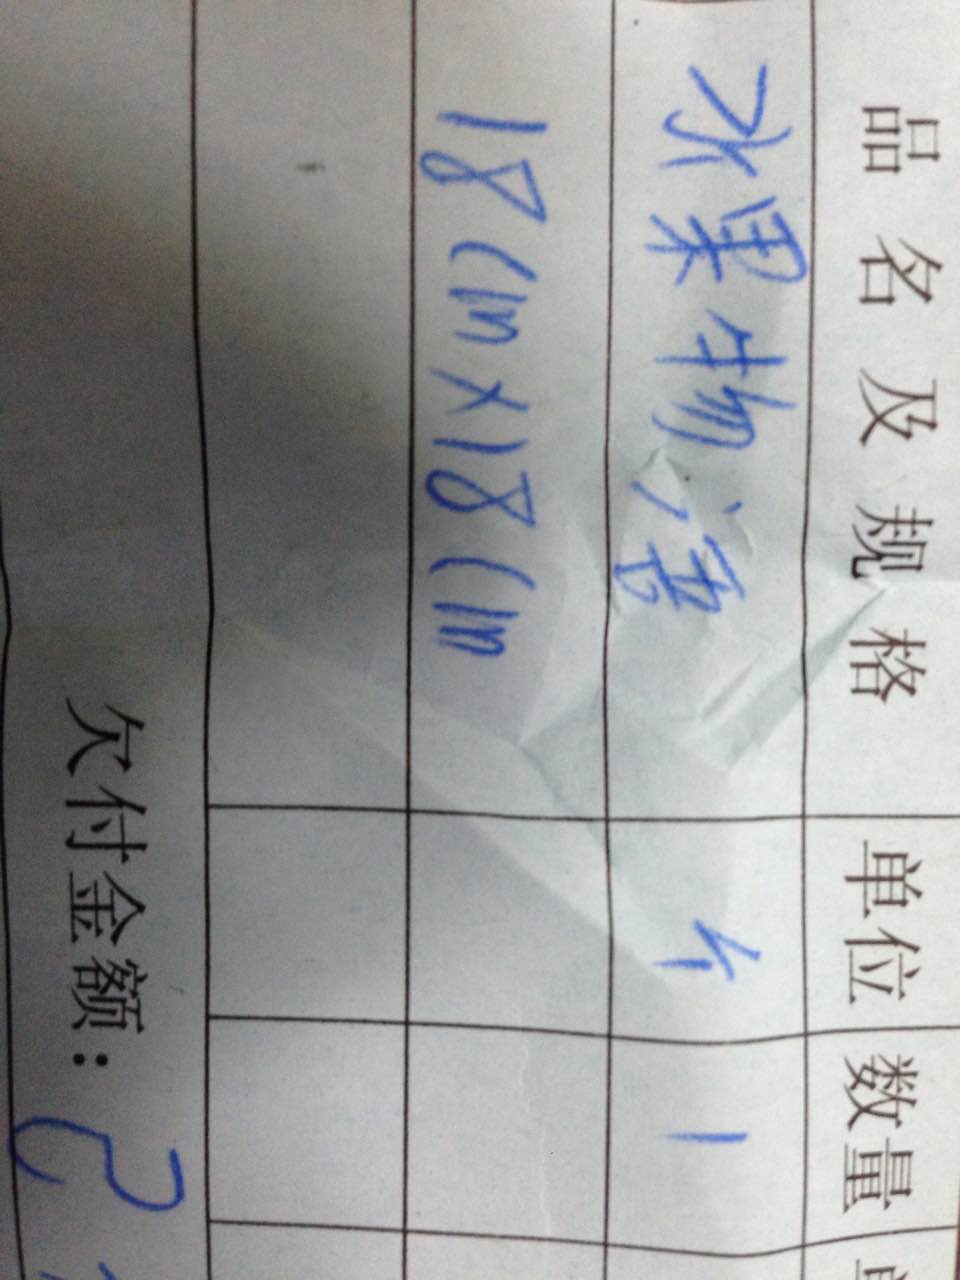 品名及规格 单位 数量
水果物语 个 1
18cm×18cm
欠付金额：